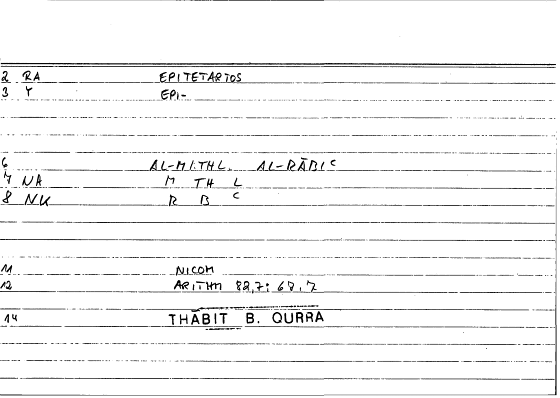 2 RA EPITETARTOS
3 Y EPI-
6 AL-MITHL. AL-RĀBIC
7 NA M TH L
8 NK R B C
11 NICOM
12 ARITHM 82,7: 68,7
14 THĀBIT B. QURRA